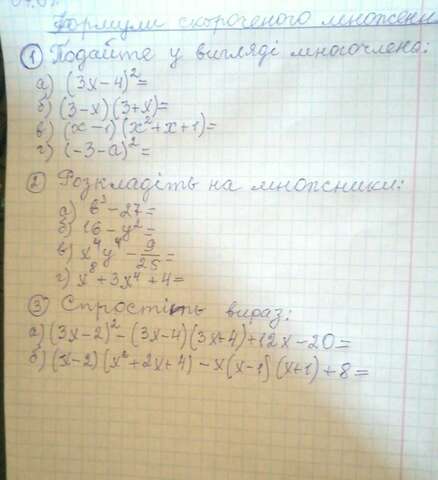 Формули скороченого множення
① Подайте у вигляді многочлена:
а) (3x-4)²=
б) (3-x)(3+x)=
в) (x-1)(x²+x+1)=
г) (-3-a)²=
② Розкладіть на множники:
а) b³-27=
б) 16-y²=
в) x⁴y⁴-9/25=
г) x⁸+3x⁴+4=
③ Спростіть вираз:
а) (3x-2)²-(3x-4)(3x+4)+12x-20=
б) (x-2)(x²+2x+4)-x(x-1)(x+1)+8=